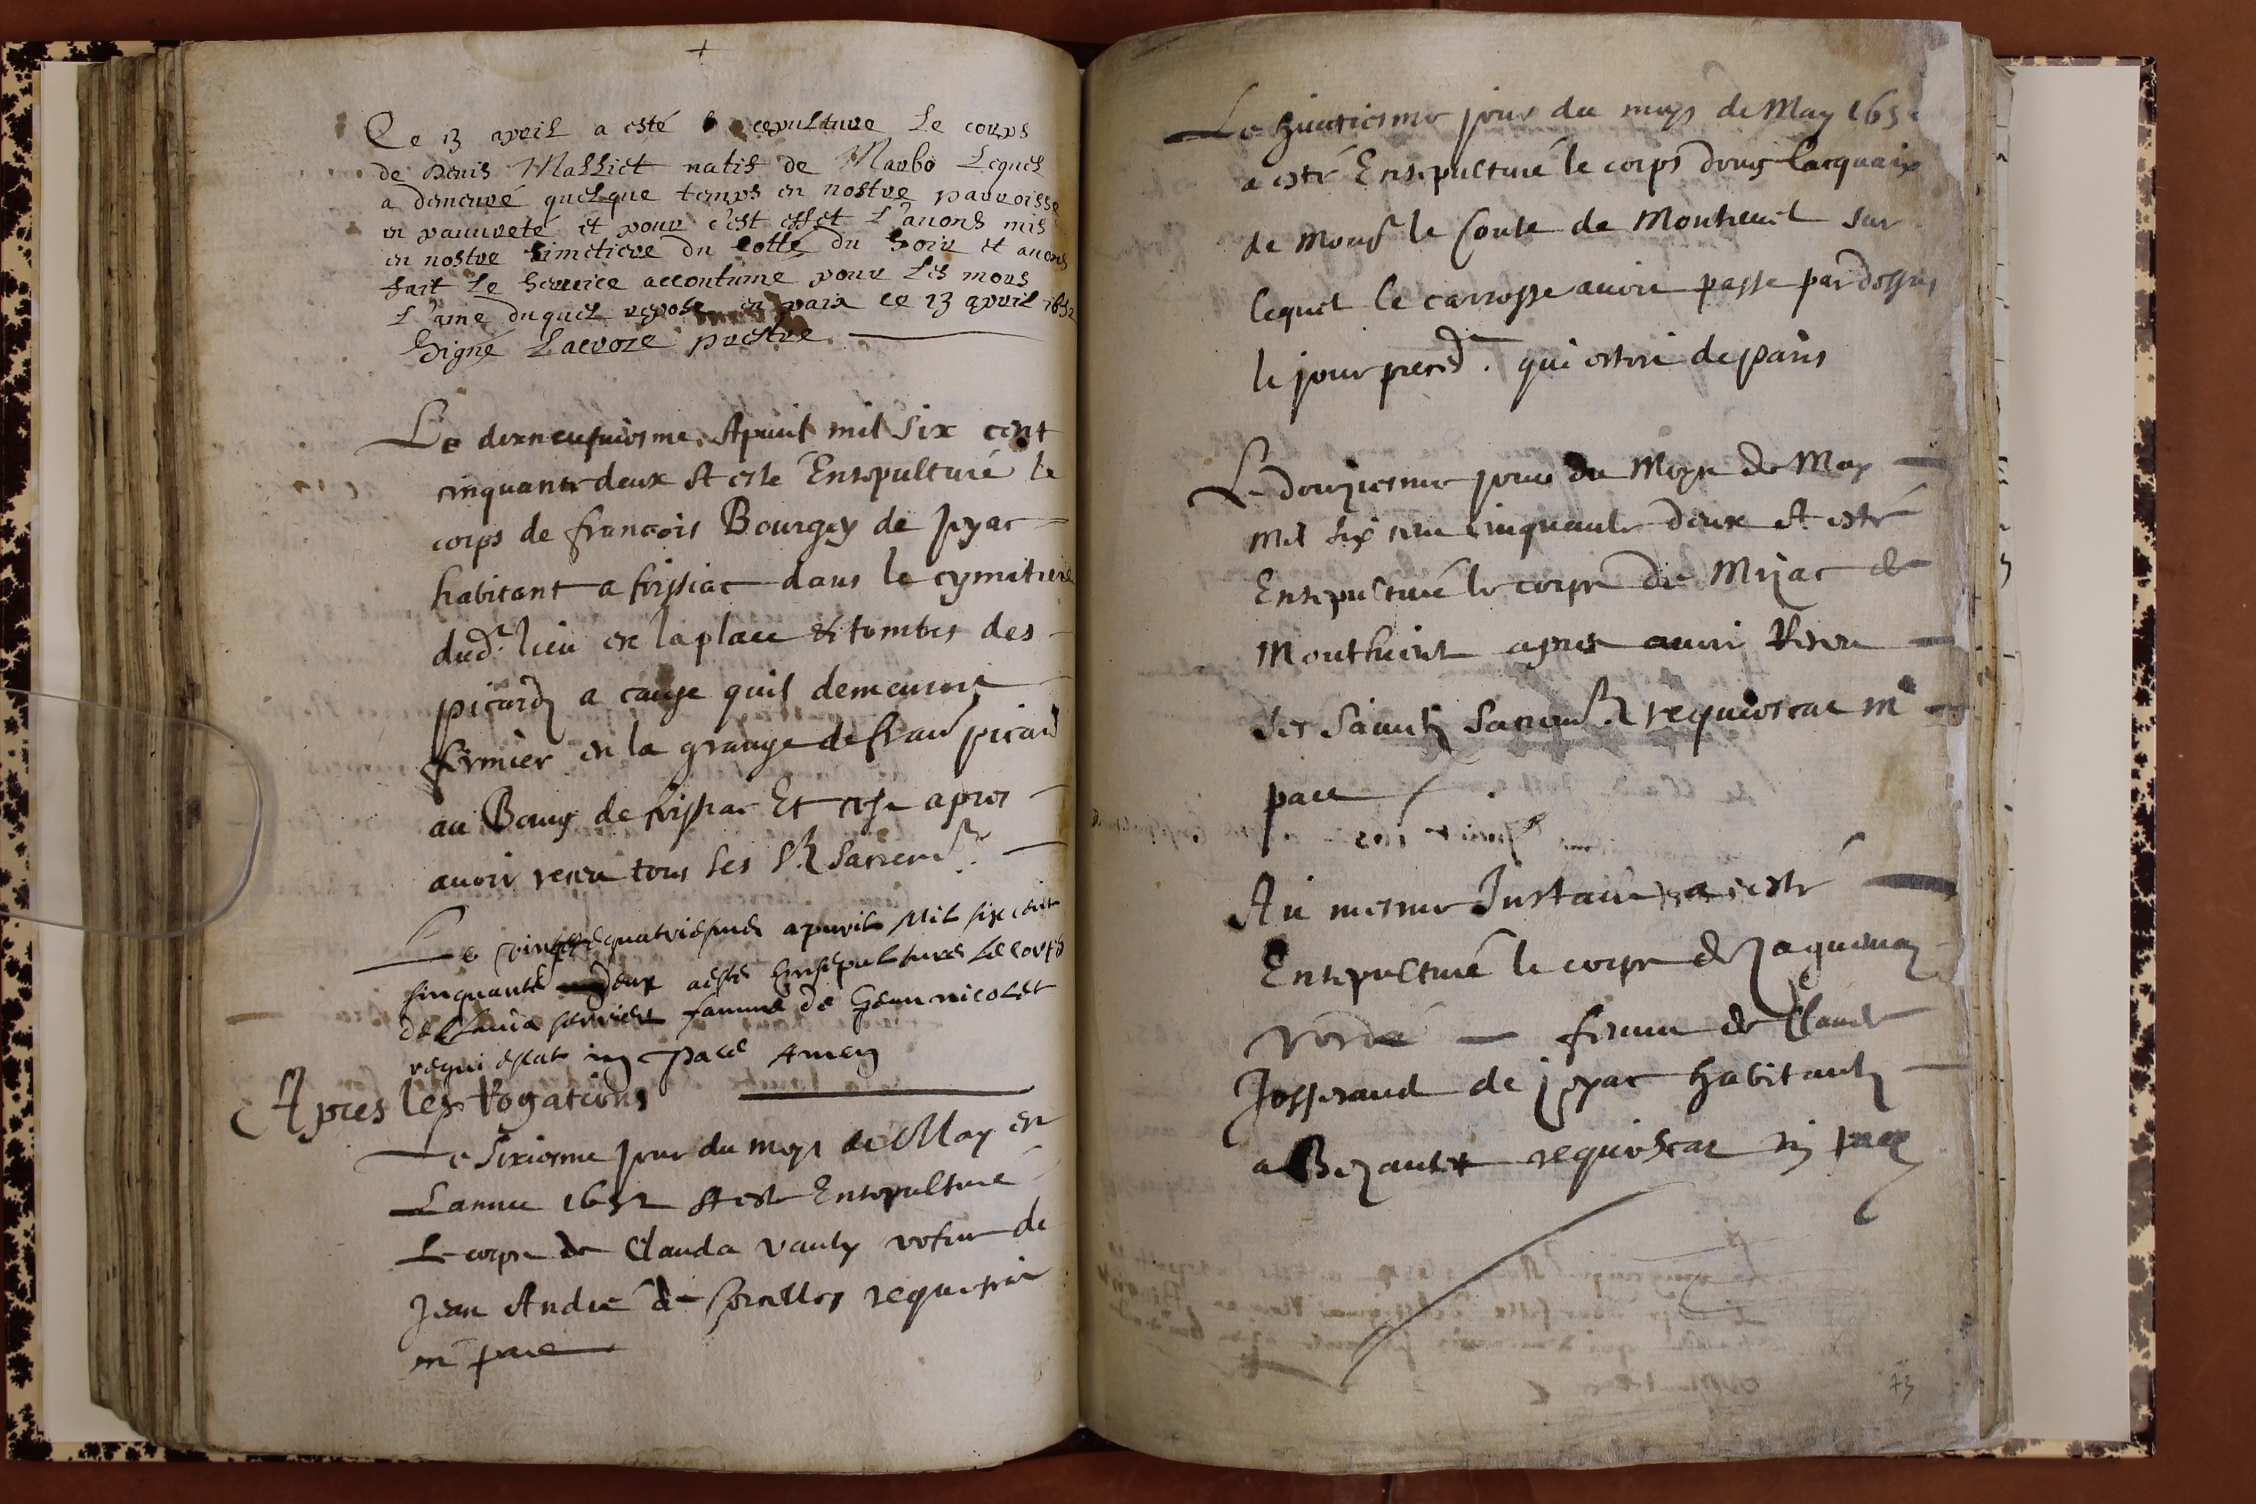 Ce 13 apvril a esté ce cepulture Le corps
de Denis Malliet natif de Marbo Lequel
a demeuré quelque temps en nostre parroisse
en pauureté et pour c'est effet L'auons mis
en nostre simetiere du Cotté du soir et auons
fait Le seruice accoutumé pour Les mors
L'ame duquel repose en paix ce 13 apvril 1652
Signé Lacroze prestre
Le dixneufuiesme Apuril mil six cent
cinquante deux A esté Ensepulturé le
corps de françois Bourgey de Jeyac
habitant a foissiac dans le cymitiere
dud.t lieu en la place & tombes des
picardz a cause quil demeuroit
fermier en la grange de fran picard
au Bourg de foissiac Et ce apres
auoir receu tous les Stz Sacremtz
Le vingt quatriesme apuril Mil six cent
sinquante deux aesté Ensepulturé Le corps
de Clauda perrier famme de Gean nicolet
requiescat in pace Amen
Apres les Rogations
Le sixiesme jour du moys de May en
Lannee 1652 A esté Ensepulturé
Le corps de Clauda vauly vefue de
Jean André de Corcelles requiescat
in pace
Le huictiesme jour du moys de May 1652
a esté Ensepulturé le corps d'ung lacquaix
de Monsr le Conte de Montreuel sur
lequel le carrosse auoit passé par dessus
le jour preced.t qui estoit de paris
Le douziesme jour du Moys de May
Mil six cent cinquante deux A esté
Ensepulturé le corps de
apres auoir Receu
les Saintz Sacremtz requiescat in
pace
Au mesme Instant a esté
Ensepulturé le corps de Jaquema
femme de Claude
Josserand de jeyac habitantz
a requiescat in pace
73